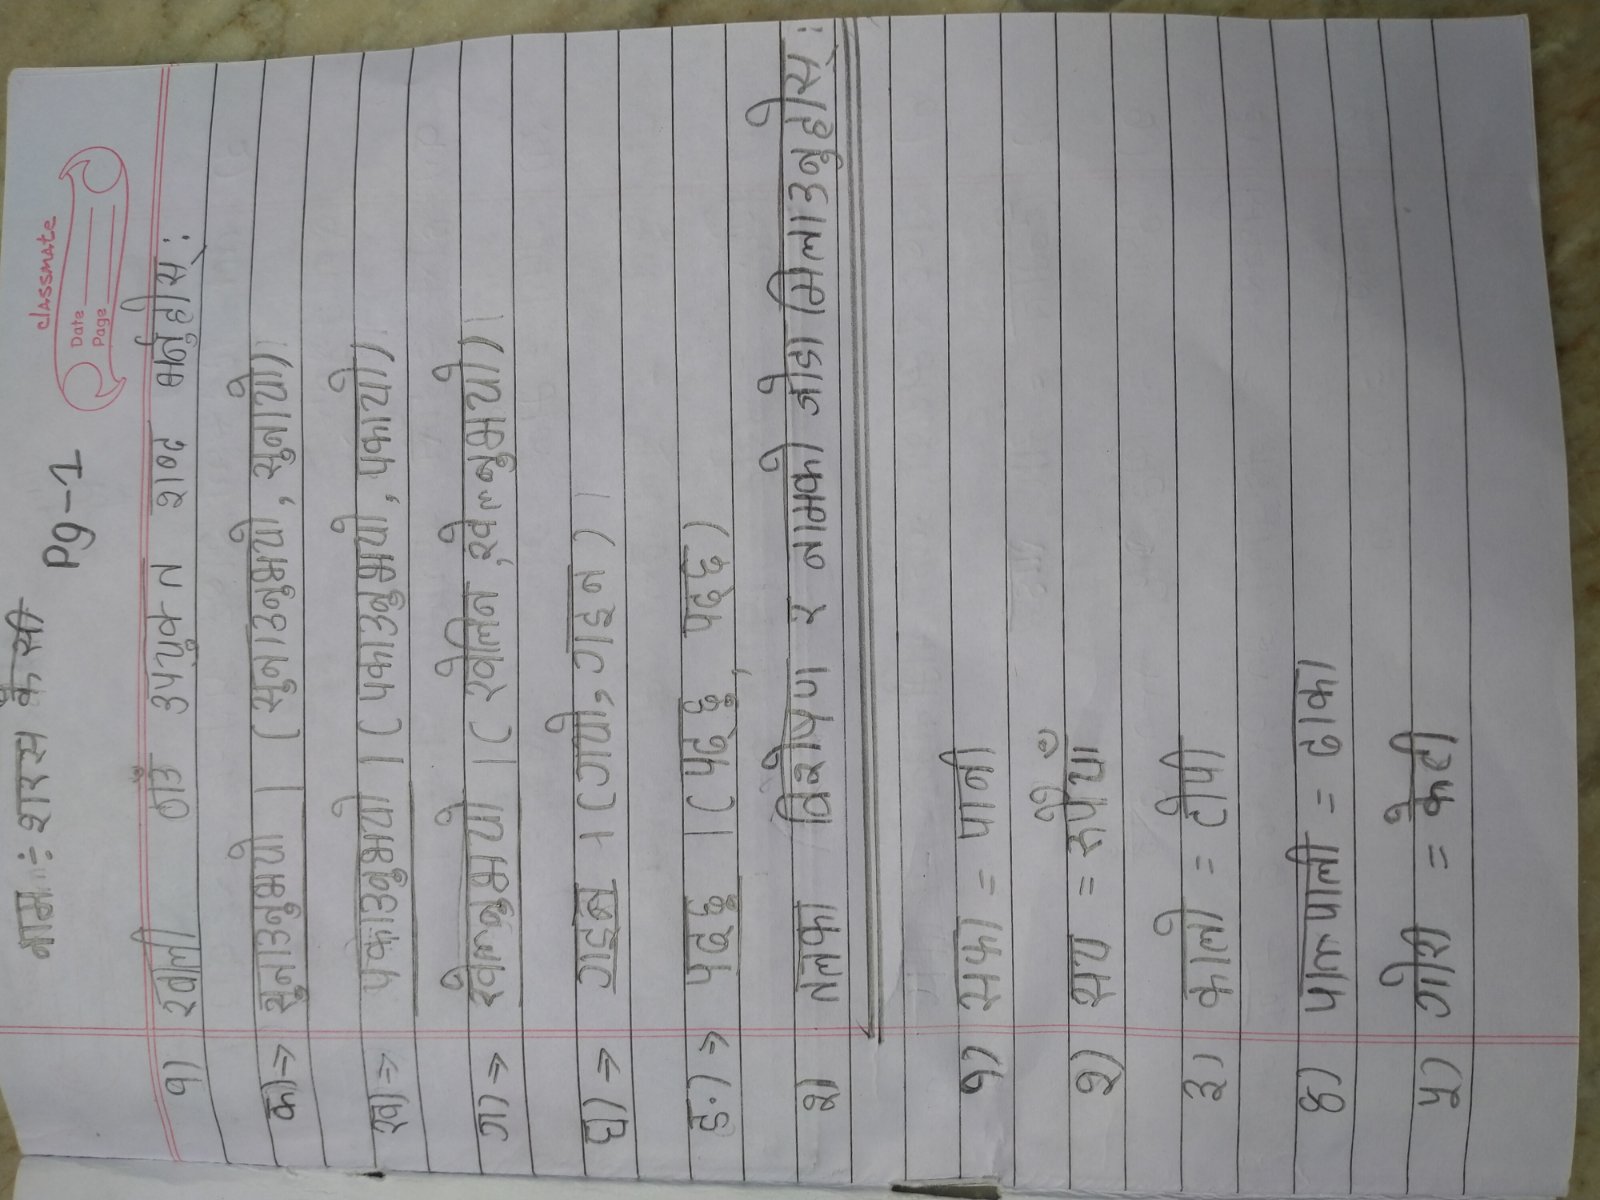 नाम: शारस के सी
Pg-1
classmate
Date
Page
१) खाली ठाउँ उपयुक्त शब्द भर्नुहोस्:
क) ⇒ सुनाउनुभयो । (सुनाउनुभयो, सुनायो)।
ख) ⇒ पकाउनुभयो । (पकाउनुभयो, पकायो)
ग) ⇒ खेल्नुभयो । (खेलिन, खेल्नुभयो)।
घ) ⇒ गाइन । (गायो, गाइन)।
ङ.) ⇒ पढ्छु । (पढ्छु, पढ्छ)
२) तलका विशेषण र नामको जोडा मिलाउनुहोस्:
१) सफा = पानी
२) सय = रुपैयाँ
३) कालो = टोपी
४) पाल्पाली = ढाका
५) गोरा = केटी